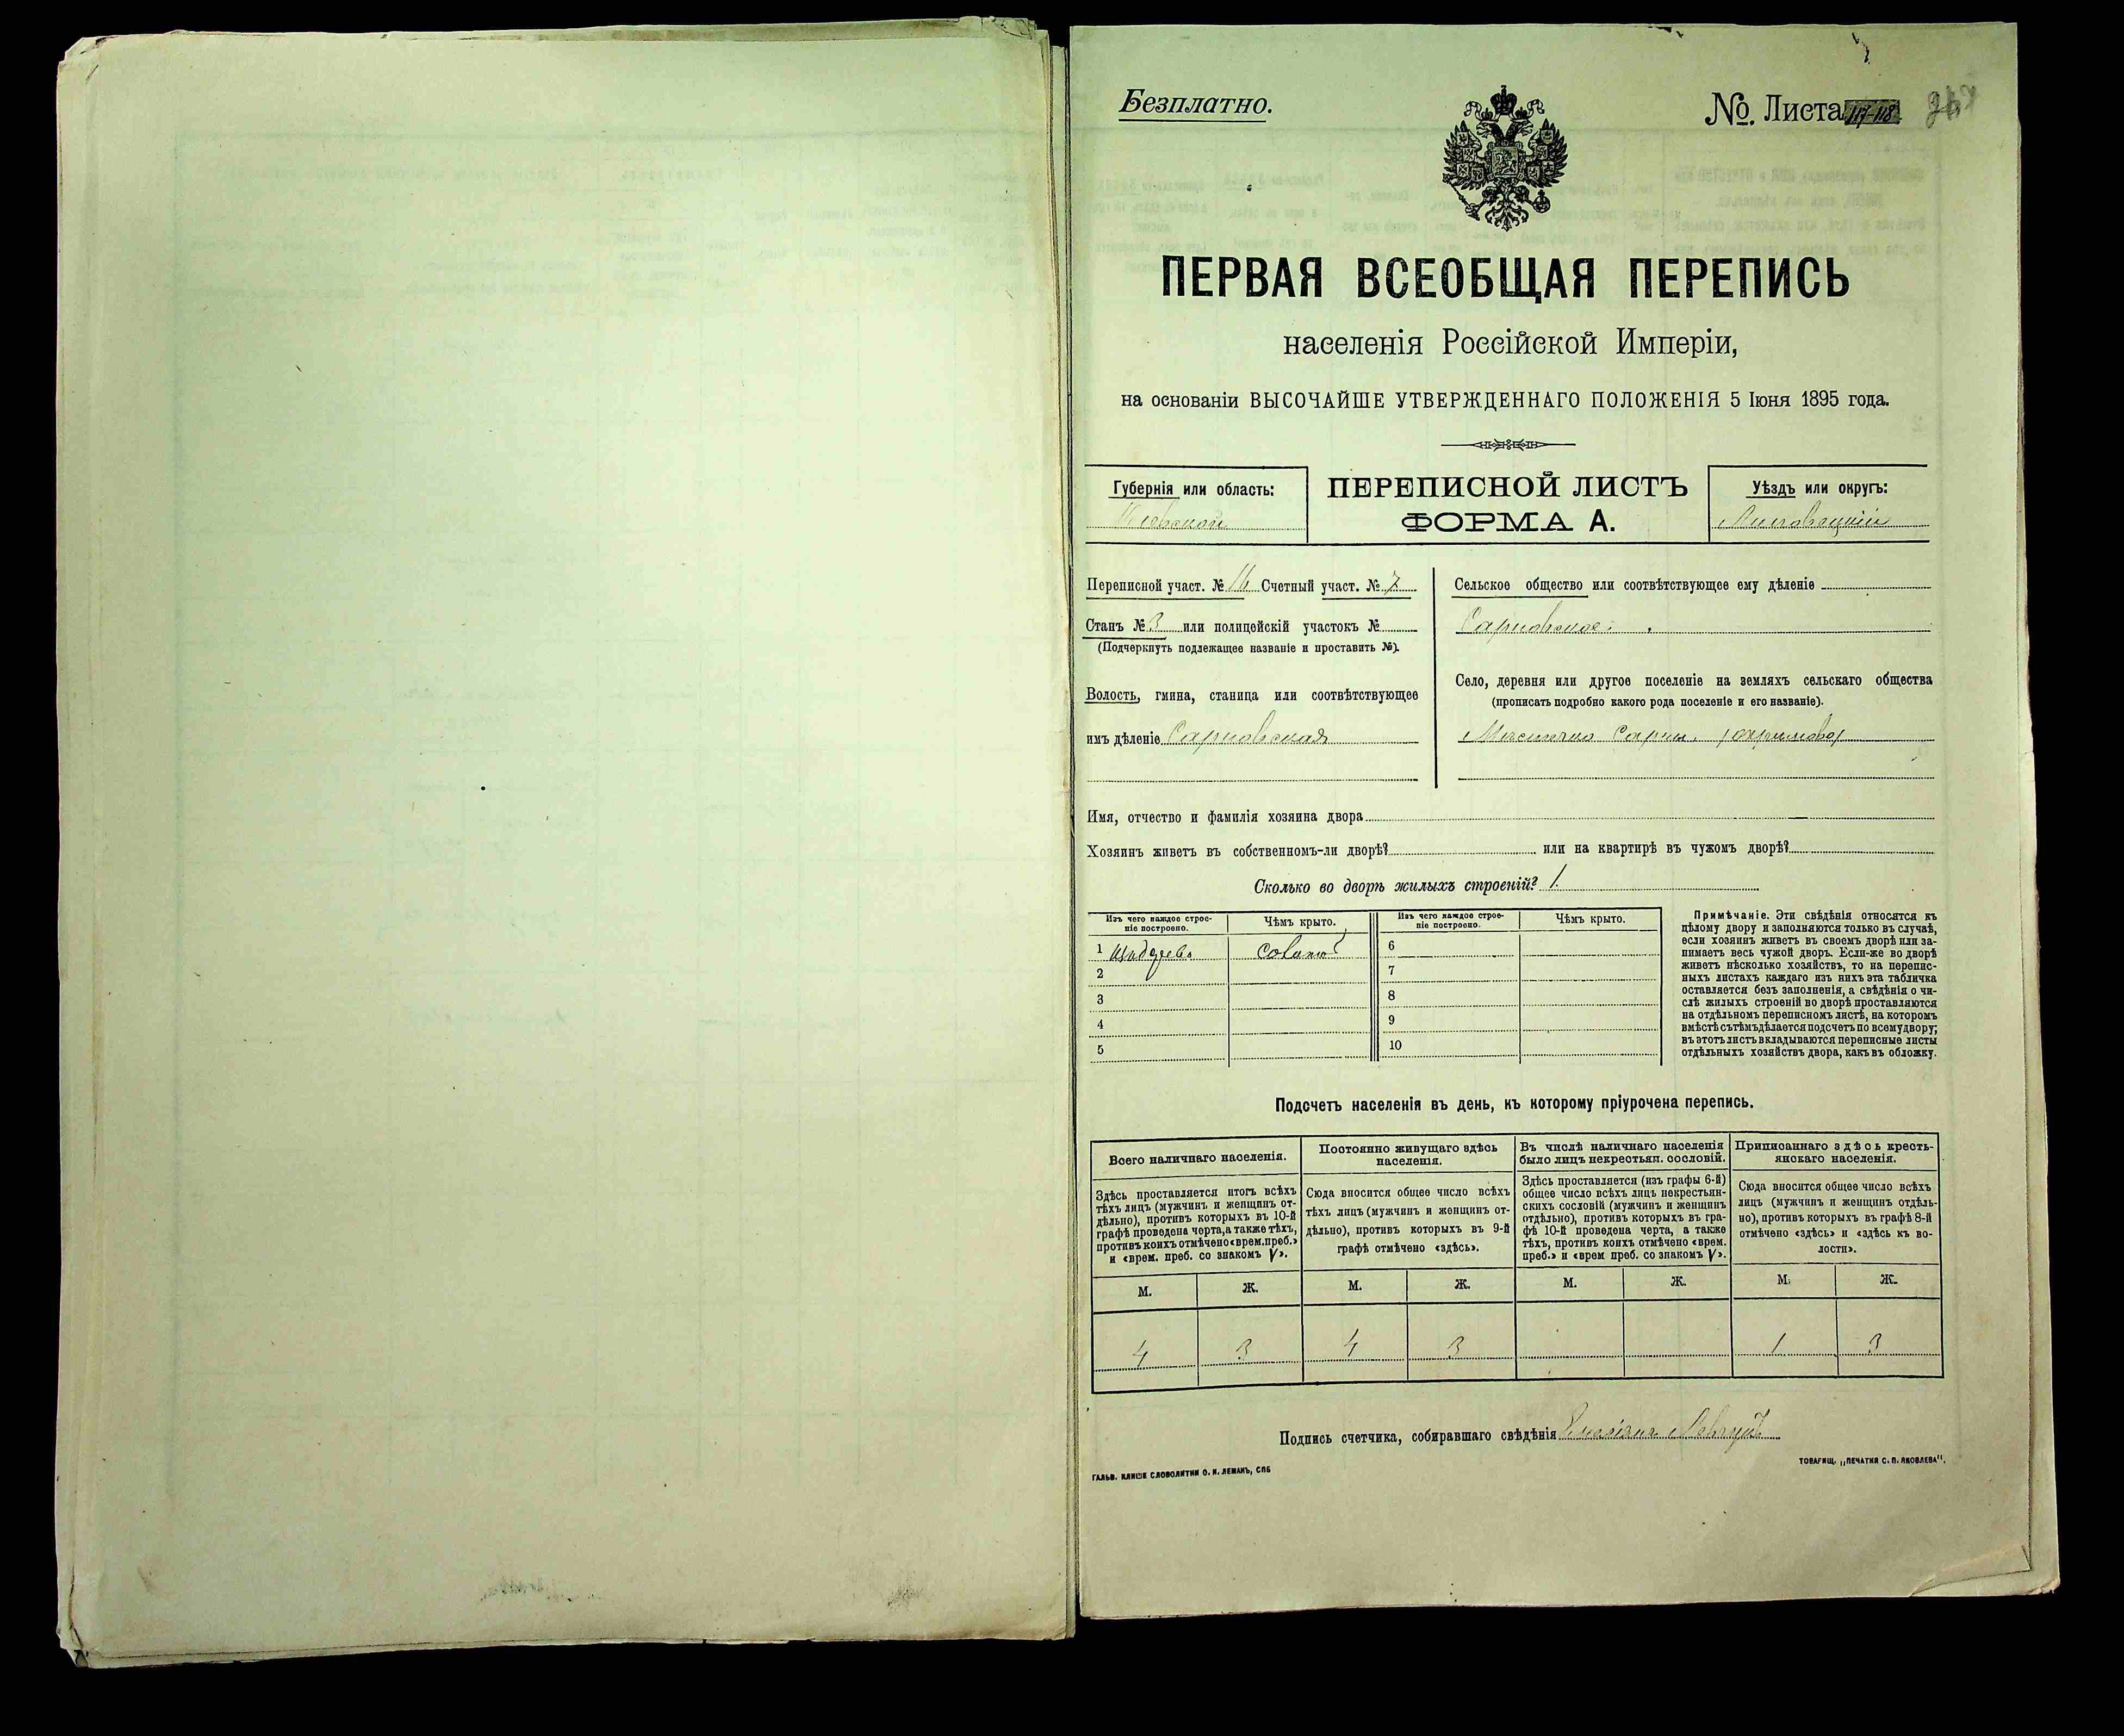 Безплатно.
№. Листа 117-118
ПЕРВАЯ ВСЕОБЩАЯ ПЕРЕПИСЬ
населенія Россійской Имперіи,
на основаніи ВЫСОЧАЙШЕ УТВЕРЖДЕННАГО ПОЛОЖЕНІЯ 5 Іюня 1895 года.
Губернія или область:
Кіевской
ПЕРЕПИСНОЙ ЛИСТЪ
ФОРМА А.
Уѣздъ или округъ:
Липовецкій
Переписной участ. № 16 Счетный участ. № 7
Станъ № 3 или полицейскій участокъ №
(Подчеркнуть подлежащее названіе и проставить №).
Волость, гмина, станица или соотвѣтствующее
имъ дѣленіе Сарновская
Сельское общество или соотвѣтствующее ему дѣленіе
Сарновское
Село, деревня или другое поселеніе на земляхъ сельскаго общества
(прописать подробно какого рода поселеніе и его названіе).
Мѣстечко Сарны
Имя, отчество и фамилія хозяина двора
Хозяинъ живетъ въ собственномъ-ли дворѣ? или на квартирѣ въ чужомъ дворѣ?
Сколько во дворѣ жилыхъ строеній? 1.
Изъ чего каждое строеніе построено.
Чѣмъ крыто.
Изъ чего каждое строеніе построено.
Чѣмъ крыто.
1 солом
6
2
7
3
8
4
9
5
10
Примѣчаніе. Эти свѣдѣнія относятся къ
цѣлому двору и заполняются только въ случаѣ,
если хозяинъ живетъ въ своемъ дворѣ или за-
нимаетъ весь чужой дворъ. Если-же во дворѣ
живетъ нѣсколько хозяйствъ, то на перепис-
ныхъ листахъ каждаго изъ нихъ эта табличка
оставляется безъ заполненія, а свѣдѣнія о чи-
слѣ жилыхъ строеній во дворѣ проставляются
на отдѣльномъ переписномъ листѣ, на которомъ
вмѣстѣ съ тѣмъ дѣлается подсчетъ по всему двору;
въ этотъ листъ вкладываются переписные листы
отдѣльныхъ хозяйствъ двора, какъ въ обложку.
Подсчетъ населенія въ день, къ которому пріурочена перепись.
Всего наличнаго населенія.
Здѣсь проставляется итогъ всѣхъ
тѣхъ лицъ (мужчинъ и женщинъ от-
дѣльно), противъ которыхъ въ 10-й
графѣ проведена черта, а также тѣхъ,
противъ коихъ отмѣчено «врем. преб.»
и «врем. преб. со знакомъ V».
Постоянно живущаго здѣсь
населенія.
Сюда вносится общее число всѣхъ
тѣхъ лицъ (мужчинъ и женщинъ от-
дѣльно), противъ которыхъ въ 9-й
графѣ отмѣчено «здѣсь».
Въ числѣ наличнаго населенія
было лицъ некрестьян. сословій.
Здѣсь проставляется (изъ графы 6-й)
общее число всѣхъ лицъ некрестьян-
скихъ сословій (мужчинъ и женщинъ
отдѣльно), противъ которыхъ въ гра-
фѣ 10-й проведена черта, а также
тѣхъ, противъ коихъ отмѣчено «врем.
преб.» и «врем преб. со знакомъ V».
Приписаннаго здѣсь кресть-
янскаго населенія.
Сюда вносится общее число всѣхъ
лицъ (мужчинъ и женщинъ отдѣль-
но), противъ которыхъ въ графѣ 8-й
отмѣчено «здѣсь» и «здѣсь къ во-
лости».
М. Ж. М. Ж. М. Ж. М. Ж.
4 3 4 3 1 3
Подпись счетчика, собиравшаго свѣдѣнія
ГАЛЬВ. КЛИШЕ СЛОВОЛИТНИ О. И. ЛЕМАНЪ, СПБ
ТОВАРИЩ. „ПЕЧАТНЯ С. П. ЯКОВЛЕВА".